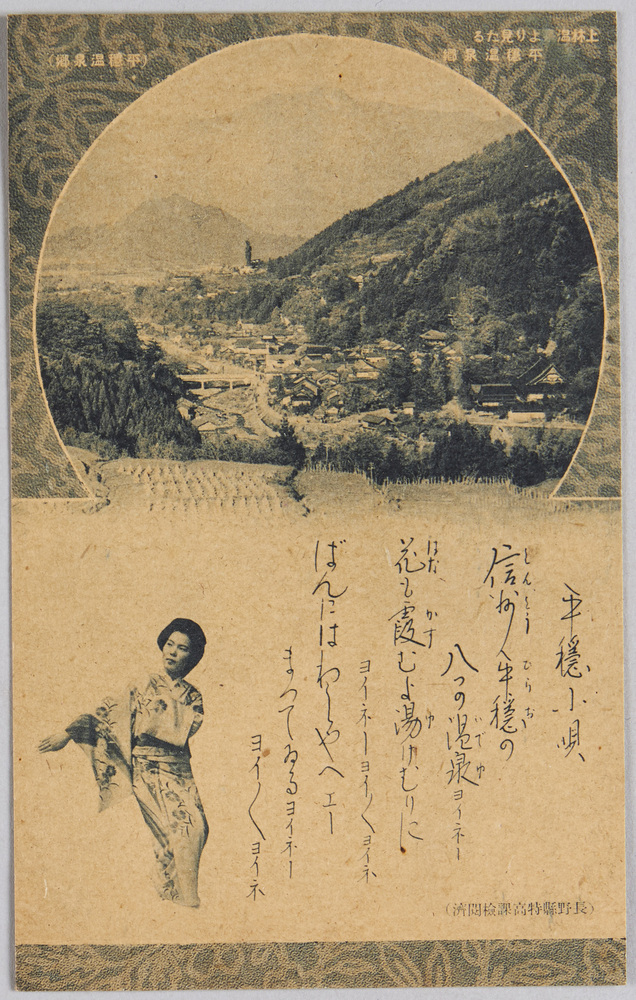 上林温泉より見たる
平穩温泉郷
(平穩温泉郷)
平穩小唄
信州ハ平穩の
八つの温泉ヨイネー
いでゆ
花も霞むよ湯けむりに
はな かす ゆ
ヨイネーヨイ〱ヨイネ
ばんにはわしやヘエー
まつてゐるヨイネー
ヨイ〱ヨイネ
(長野縣特高課檢閲濟)